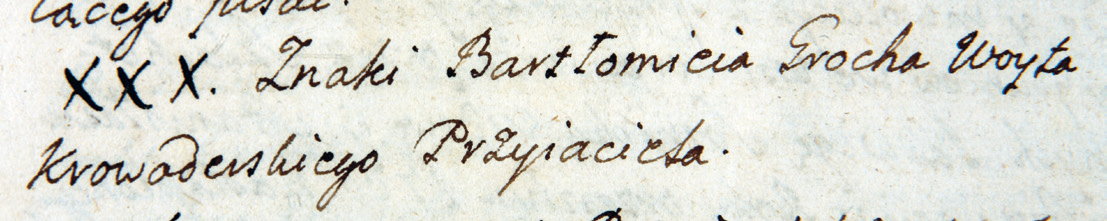 XXX. Znaki Bartłomieia Grocha Woyta
Krowoderskiego Przyiaciela.